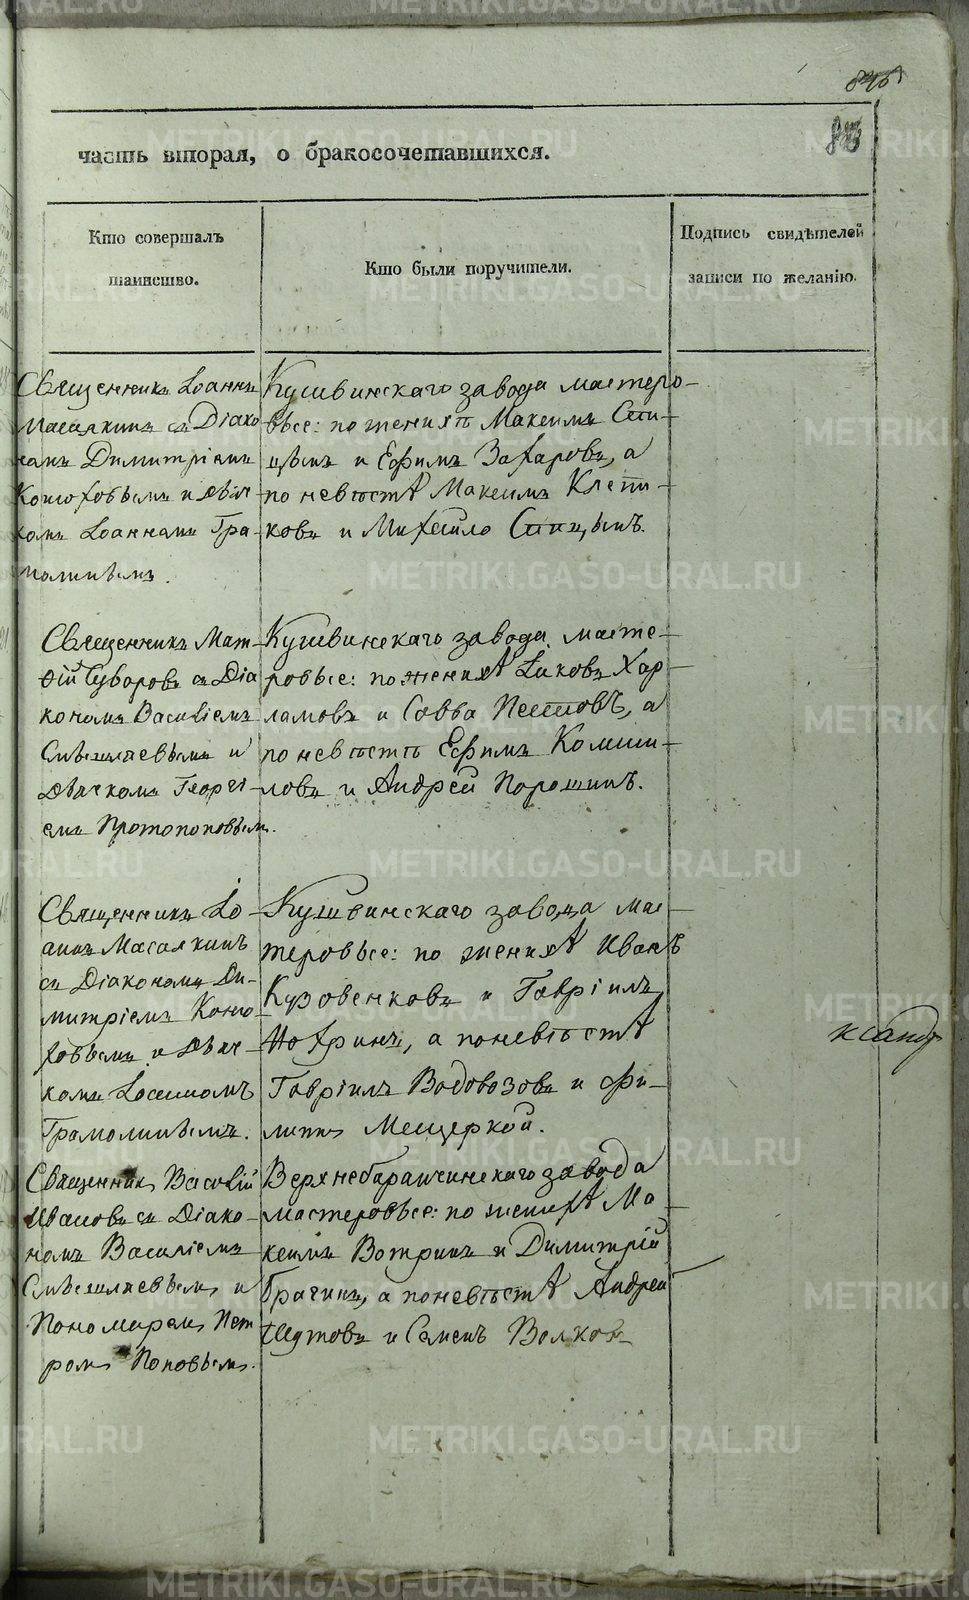 часть вторая, о бракосочетавшихся.
Кто совершалъ
таинство.
Кто были поручители.
Подпись свидѣтелей
записи по желанію.
Священникъ Іоаннъ
Масалкинъ съ Діако
номъ Димитріемъ
Конюховымъ и дьяч-
комъ Іоанномъ Гра-
Кушвинскаго завода мастеро-
вые: по женихѣ Максимъ Спи-
цынъ и Ефимъ Захаровъ, а
по невѣстѣ Максимъ Клепи-
ковъ и Михайло Спицынъ.
Священникъ Мат-
ѳій Суворовъ съ Діа
кономъ Василіемъ
Смышляевымъ и
дьячкомъ Георгі-
емъ Протопоповымъ.
Кушвинскаго завода масте-
ровые: по женихѣ Іаковъ Хар-
ламовъ и Савва Пестовъ, а
по невѣстѣ Ефимъ
и Андрей Порошинъ.
Священникъ Іо-
аннъ Масалкинъ
съ Діакономъ Ди-
митріемъ Коню-
ховымъ и Дьяч-
комъ
Кушвинскаго завода мас-
теровые: по женихѣ Иванъ
Кузовенковъ и Гавріилъ
Нохринъ, а по невѣстѣ
Гавріилъ Водовозовъ и Фи-
липъ
Священникъ Василій
Ивановъ съ Діако-
номъ Василіемъ
Смышляевымъ и
Пономаремъ Пет
ромъ Поповымъ.
Верхнебаранчинскаго завода
мастеровые: по женихѣ Ма-
ксимъ Вотринъ и Димитрій
а по невѣстѣ Андрей
Шутовъ и Семенъ Волковъ
ксандр
METRIKI.GASO-URAL.RU